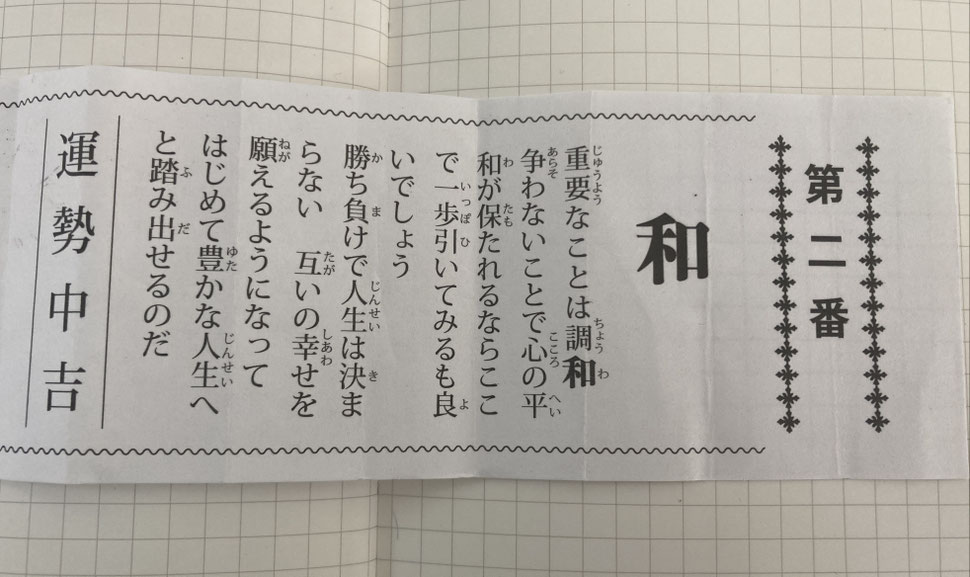 第二番
和
重要なことは調和
争わないことで心の平
和が保たれるならここ
で一歩引いてみるも良
いでしょう
勝ち負けで人生は決ま
らない　互いの幸せを
願えるようになって
はじめて豊かな人生へ
と踏み出せるのだ
運勢中吉